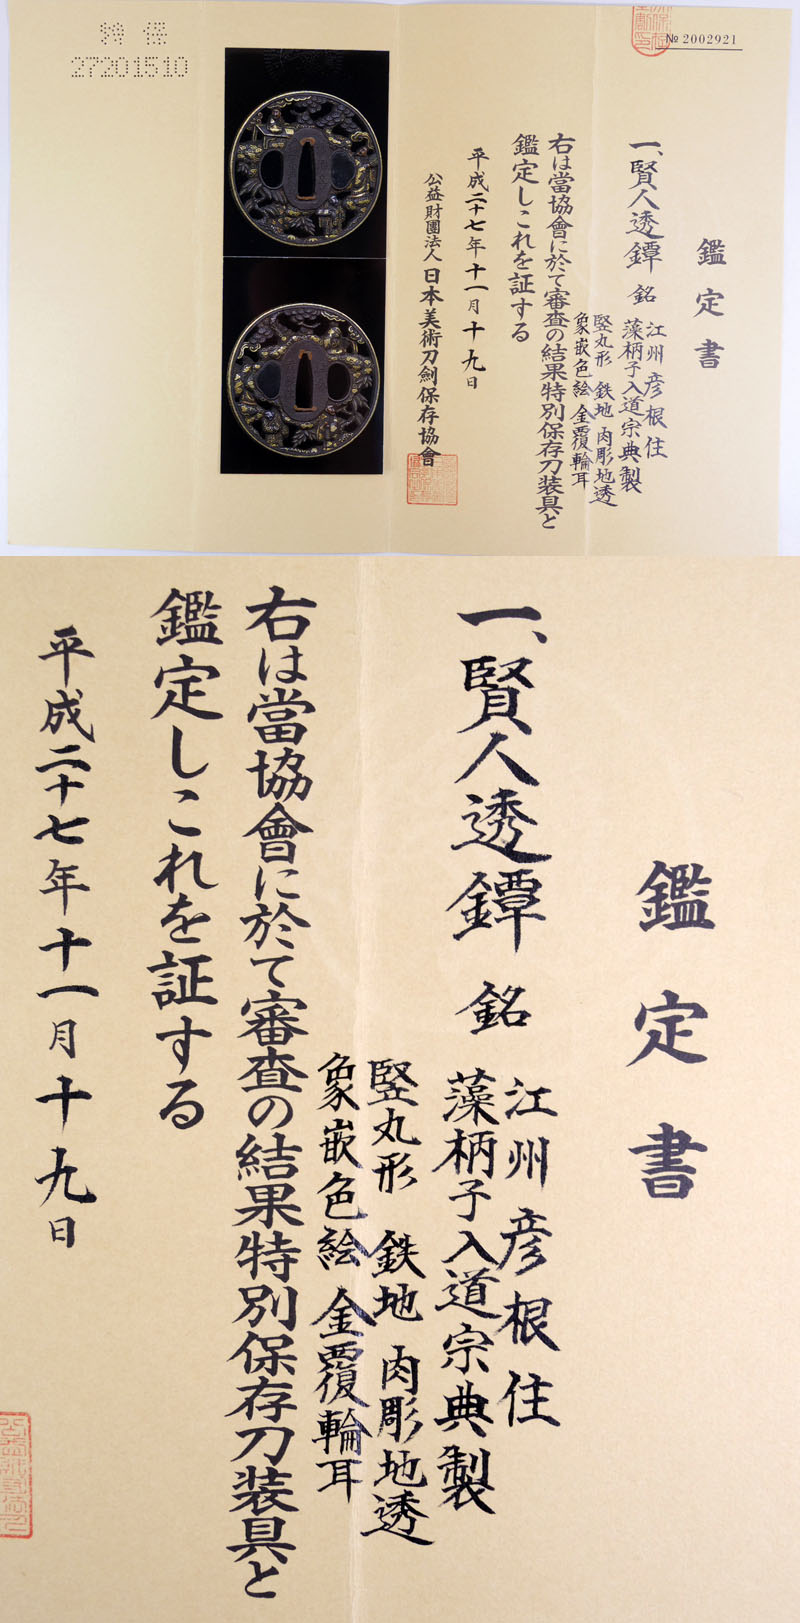 № 2002921
特保
27201510
鑑定書
一、賢人透鐔 銘 江州彦根住
藻柄子入道宗典製
竪丸形 鉄地 肉彫地透
象嵌色絵 金覆輪耳
右は當協會に於て審査の結果特別保存刀装具と
鑑定しこれを証する
平成二十七年十一月十九日
公益財團法人 日本美術刀劍保存協會
鑑定書
一、賢人透鐔 銘 江州彦根住
藻柄子入道宗典製
竪丸形 鉄地 肉彫地透
象嵌色絵 金覆輪耳
右は當協會に於て審査の結果特別保存刀装具と
鑑定しこれを証する
平成二十七年十一月十九日